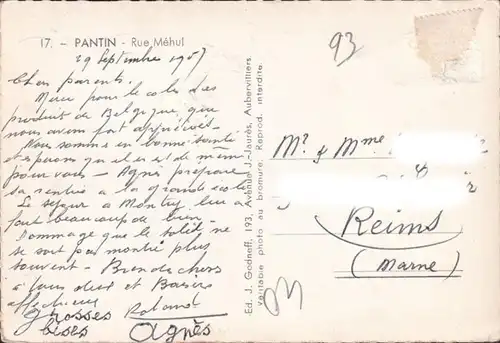 17. - PANTIN - Rue Méhul
29 Septembre 1957
Chers parents.
Merci pour le colis des
produit de Belgique que
nous avons fort appréciés.
Nous sommes en bonne santé
espérons qu'il en est de même
pour vous - Agnès prépare
sa rentrée a la grande école
Le séjour a Montry lui a
fait beaucoup de bien.
Dommage que le soleil ne
se soit pas montré plus
souvent -
à tous deux et Baisers
affectueux
Roland
grosses
bises
Agnès
Ed. J. Godneff, 193, Avenue J.-Jaurès, Aubervilliers
Véritable photo au bromure. Reprod. interdite
93
Mr & Mme
Reims
(Marne)